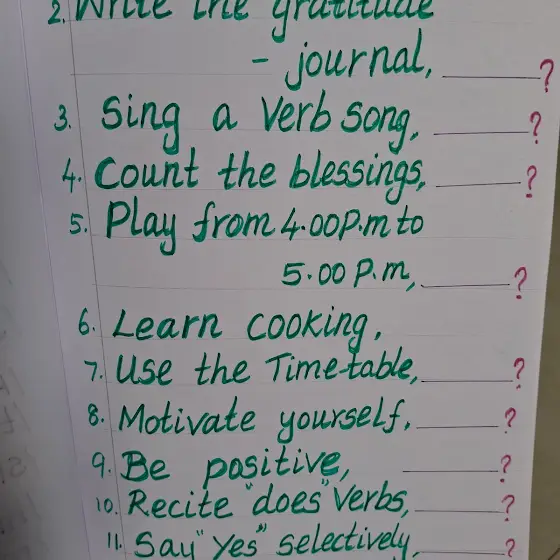 2. Write the gratitude
- journal, ______?
3. Sing a Verb song, ______?
4. Count the blessings, ______?
5. Play from 4.00P.m to
5.00 P.m, ______?
6. Learn cooking,
7. Use the Time-table, ______?
8. Motivate yourself, ______?
9. Be positive, ______?
10. Recite "does" verbs, ______?
11. Say "Yes" selectively, ______?